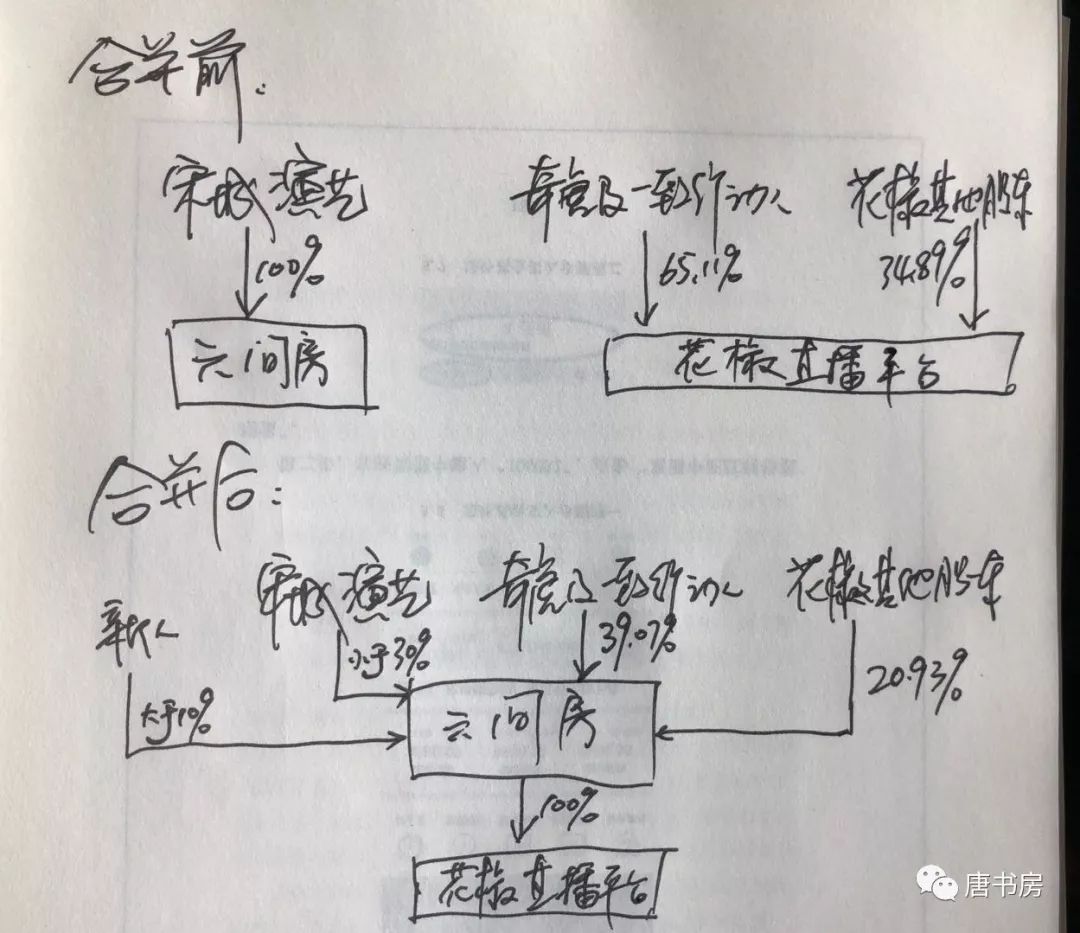 合并前：
宋城演艺 奇虎及一致行动人 花椒其他股东
100% 65.11% 34.89%
六间房 花椒直播平台
合并后：
新人 宋城演艺 奇虎及一致行动人 花椒其他股东
大于10% 小于30% 39.07% 20.93%
六间房
100%
花椒直播平台
唐书房